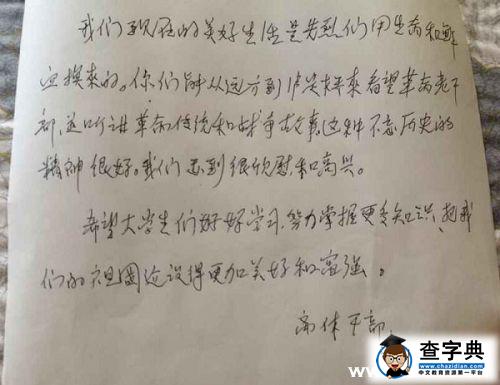 我们现在的美好生活是先烈们用生命和鲜
血换来的。你们能从远方到 来看望革命老干
部,这 讲革命传统和战争故事,这种不忘历史的
精神很好。我们感到很欣慰和高兴。
希望大学生们好好学习,努力掌握更多知识,把我
们的祖国建设得更加美好和富强。
离休干部
查字典
www.chazidian.com
中文教育资源第一平台